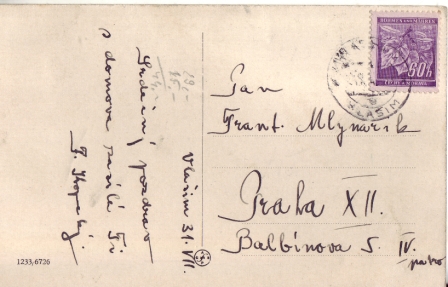 Srdečný pozdrav
z domova zasílá Ti
Vlašim 31. VII.
Pan
Frant. Mlynarik
Praha XII.
Balbínova 5. IV.
patro
BÖHMEN UND MÄHREN
60h
ČECHY A MORAVA
VLAŠIM
1233,6726